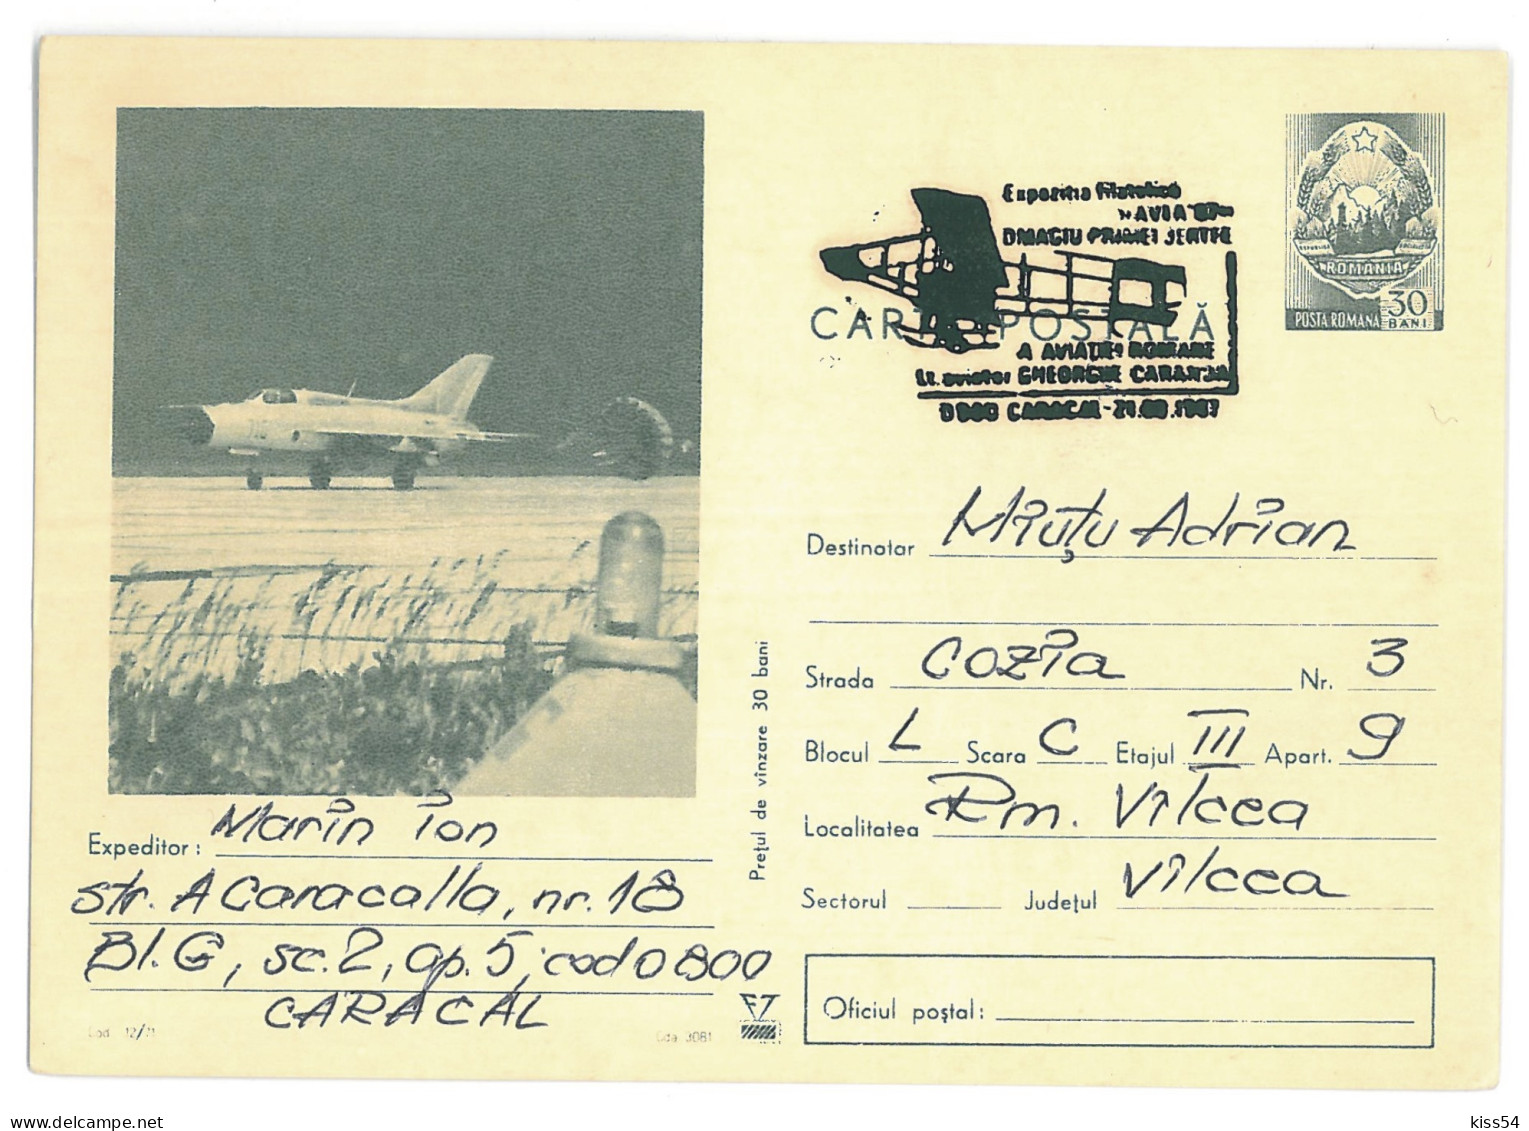 Expoziția filatelică
»AVIA '87«
OMAGIU PRIMEI JERTFE
CARTE POȘTALĂ
A AVIAȚIEI ROMÂNE
Lt. aviator GHEORGHE CARANDA
CARACAL - 21.08.1987
ROMANIA
POSTA ROMANA 30 BANI
716
Destinatar Miuțu Adrian
Strada Cozia Nr. 3
Blocul L Scara C Etajul III Apart. 9
Localitatea Rm. Vîlcea
Sectorul Județul Vîlcea
Oficiul poștal:
Prețul de vînzare 30 bani
Expeditor: Marin Ion
str. A Caracalla, nr. 18
Bl. G, sc. 2, ap. 5, cod 0800
CARACAL
Cod 12/71
Cda 3081
delcampe.net
kiss54